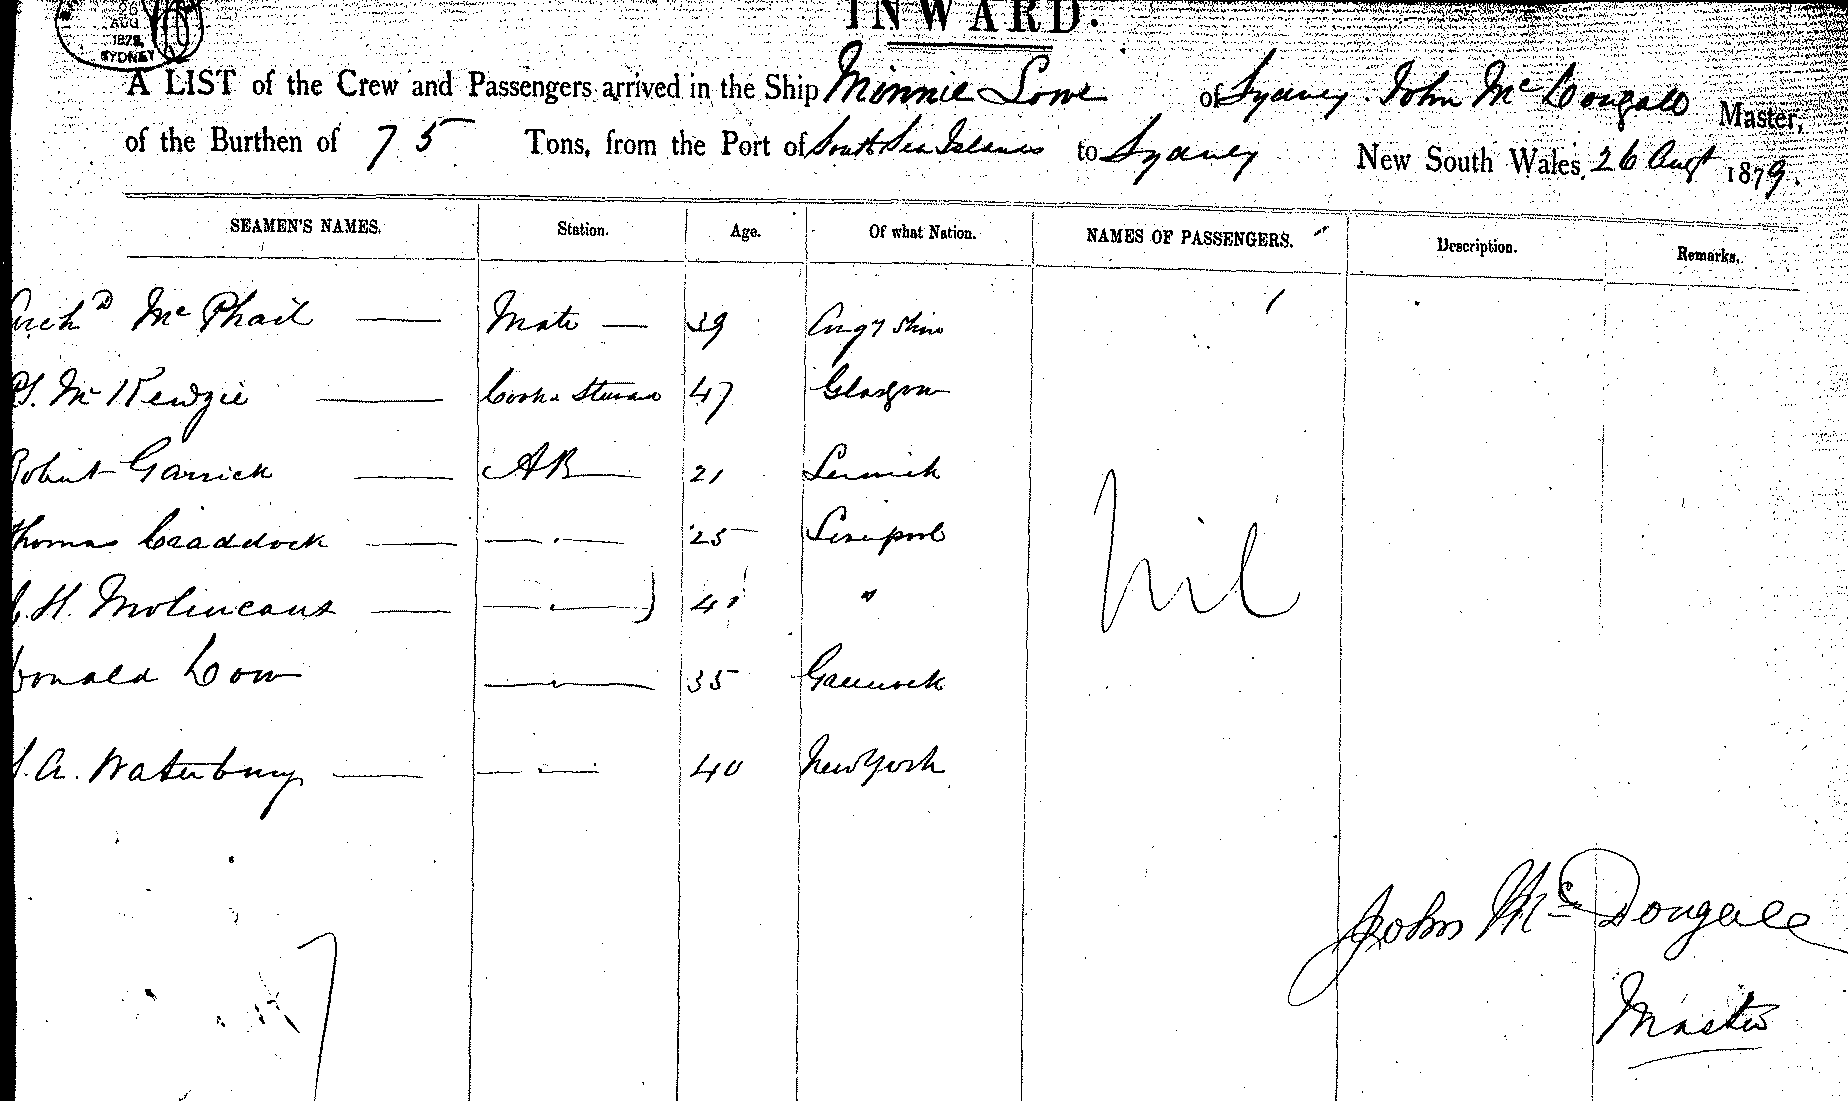 INWARD.
26
AUG
1879
SYDNEY
A LIST of the Crew and Passengers arrived in the Ship Minnie Lowe of Sydney. John McDougall Master,
of the Burthen of 75 Tons, from the Port of South Sea Islands to Sydney New South Wales, 26 Augt 1879.
SEAMEN'S NAMES. Station. Age. Of what Nation. NAMES OF PASSENGERS. Description. Remarks.
Archd McPhail — Mate — 39 Argyshire
McKenzie — Cook & Steward 47 Glasgow
Robert Garrick — AB — 21 Lerwick
Thomas Craddock — — . — 25 Liverpool
H. Molineaux — — . — 41 "
Nil
Donald Cow — . — 35 Greenock
A. Waterbury — — . — 40 New York
John McDougall
Master
7